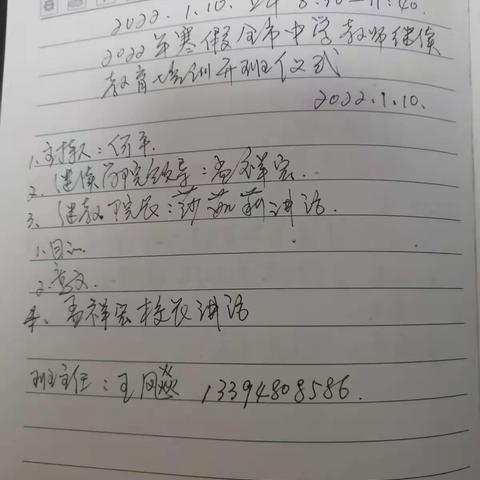 2022.1.10. 上午 8:30-11:40.
2022年寒假全市中学教师继续
教育培训开班仪式
2022.1.10.
1.主持人:何平.
2.继续学院领导:孟祥宏.
3、继教院长:莎茹莉讲话.
1.目标
2.意义
4、孟祥宏校长讲话
班主任:王飚 13394808586.